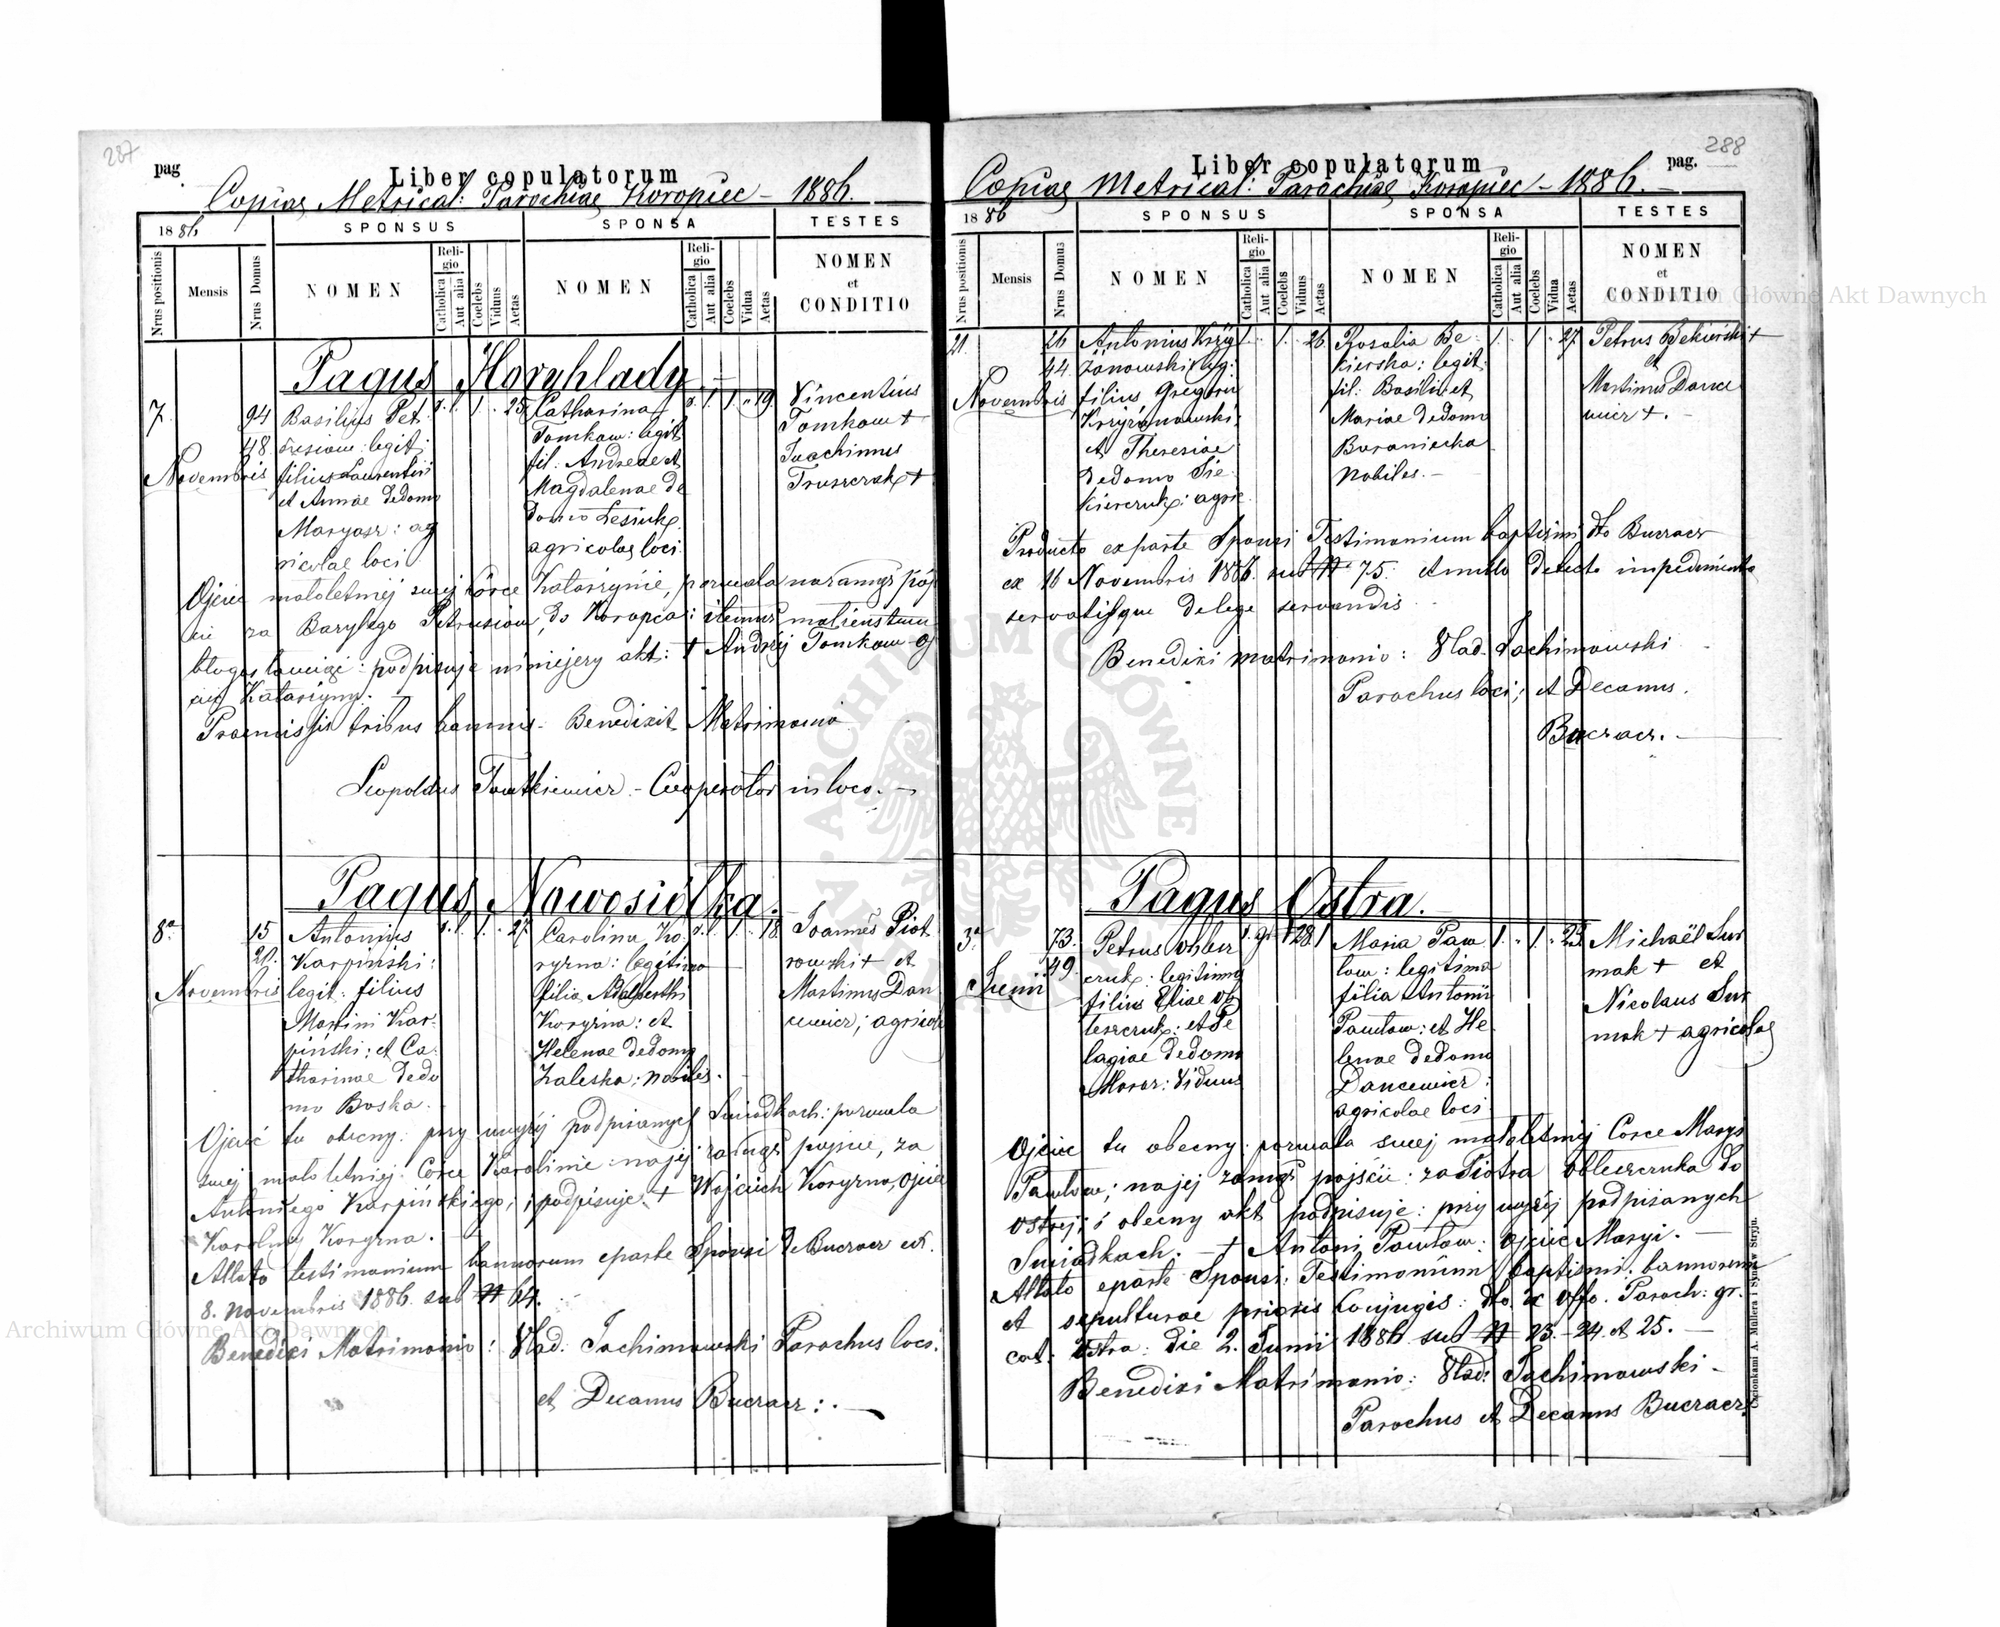 287
pag
Liber copulatorum
Copiae Metrical: Parochiae Koropiec - 1886.
1886
SPONSUS
SPONSA
TESTES
Nrus positionis
Mensis
Nrus Domus
NOMEN
Religio
Catholica
Aut alia
Coelebs
Viduus
Aetas
NOMEN
Religio
Catholica
Aut alia
Coelebs
Vidua
Aetas
NOMEN
et
CONDITIO
Pagus Horyhlady
7.
Novembris
94
48
Basilius Pet
rusiow: legit:
filius Laurentii
et Annae de domo
Maryasz: ag
ricolae loci
1. 25
Catharina
Tomkow: legit
fil: Andreae et
Magdalenae de
domo Lesiuk
agricolae loci
1. 19.
Vincentius
Tomkow +
Joachimus
Trusiczak +
Ojciec małoletniej swej córce Katarzynie, pozwala na zamąż pójś
cie za Bazylego Petrusiow, do Koropca:
błogosławiąc: podpisuje niniejszy akt: + Andrzej Tomkow oj
ciec Katarzyny.
Praemissis tribus bannis - Benedixit Matrimonio
Leopoldus - Cooperator in loco. -
Pagus Nowosiółka.
8a
Novembris
15
21.
Antonius
Karpinski:
legit: filius
Martini Kar
piński: et Ca
tharinae de do
mo Boska.
1. 27
Carolina Ko
ryzna: legitima
filia Adalberthi
Koryzna: et
Helenae de domo
Zaleska: nobiles.
1. 18
Joannes Piot
rowski + et
Martinus Dan
cewicz; agricolae
Ojciec tu obecny: przy wyżej podpisanych Świadkach: pozwala
swej małoletniej Córce Karolinie: na jej zamąż pójście, za
Antoniego Karpińskiego; i podpisuje + Wojciech Koryzna, Ojciec
Karoliny Koryzna. -
Allato testimonium bannorum eparte Sponsi de Buczacz
8. Novembris 1886 sub N 64.
Benedixi Matrimonio: Wlad. Jachimowski Parochus loci.
et Decanus Buczacz: -
288
Liber copulatorum
pag.
Copiae Metrical: Parochiae Koropiec - 1886. -
1886
SPONSUS
SPONSA
TESTES
Nrus positionis
Mensis
Nrus Domus
NOMEN
Religio
Catholica
Aut alia
Coelebs
Viduus
Aetas
NOMEN
Religio
Catholica
Aut alia
Coelebs
Vidua
Aetas
NOMEN
et
CONDITIO
21.
Novembris
26
44
Antonius Krzy
żanowski leg:
filius Gregorii
Krzyżanowski:
et Theresiae
de domo Sie
kierczuk: agric
1. 26
Rosalia Be
kierska: legit
fil: Basilii et
Mariae de domo
Baraniecka
Nobiles. -
1. 27
Petrus Bekierski +
et
Martinus Dance
wicz +. -
Producto ex parte Sponsi Testimonium baptismi dto Buczacz
ex 16 Novembris 1886. sub N 75. et nullo detecto impedimento
servatisque de lege servandis.
Benedixi matrimonio: Wlad. Jachimowski
Parochus loci; et Decanus.
Buczacz. -
Pagus Ostra.
3a
Junii
73.
49.
Petrus Obles
czuk: legitimus
filius Eliae Ob
leszczuk: et Pe
lagiae de domo
Moroz: Viduus
gr. 28
Maria Paw
low: legitima
filia Antonii
Pawlow: et He
lenae de domo
Dancewicz:
agricolae loci
1. 22
Michaël Sur
mak + et
Nicolaus Sur
mak + agricolae
Ojciec tu obecny: pozwala swej małoletniej Córce Maryi
Pawlow; na jej zamąż pójście: za Piotra Obleszczuka do
Ostrej; i obecny akt podpisuje: przy wyżej podpisanych
Świadkach: - + Antoni Pawlow: ojciec Maryi. -
Allato eparte Sponsi: Testimonium baptismi. bannorum
et sepulturae prioris Conjugis: dto ex Offo. Paroch: gr.
cat: Ostra: die 2. Junii 1886 sub N 23. - 24. et 25. -
Benedixi Matrimonio: Wlad: Jachimowski -
Parochus et Decanus Buczacz.
Czcionkami A. Mullera i Syna w Stryju.
Archiwum Główne Akt Dawnych
Archiwum Główne Akt Dawnych